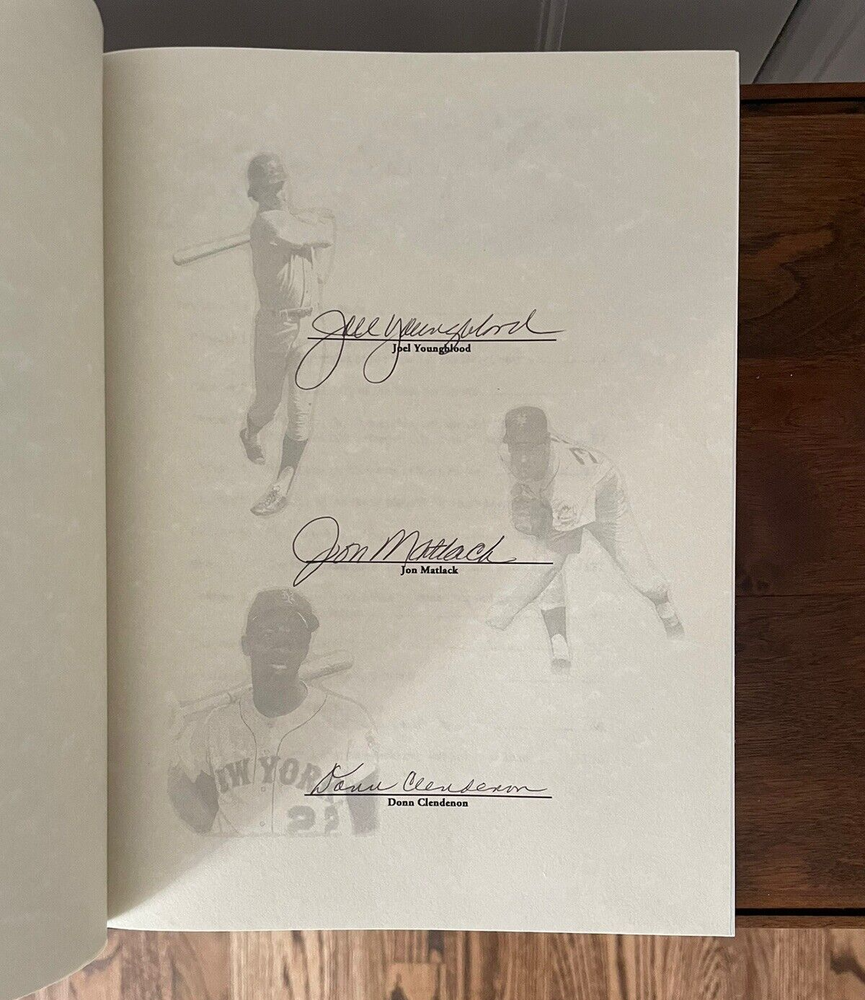 Joel Youngblood
Joel Youngblood
Jon Matlack
Jon Matlack
NEW YORK
Donn Clendenon
Donn Clendenon
22